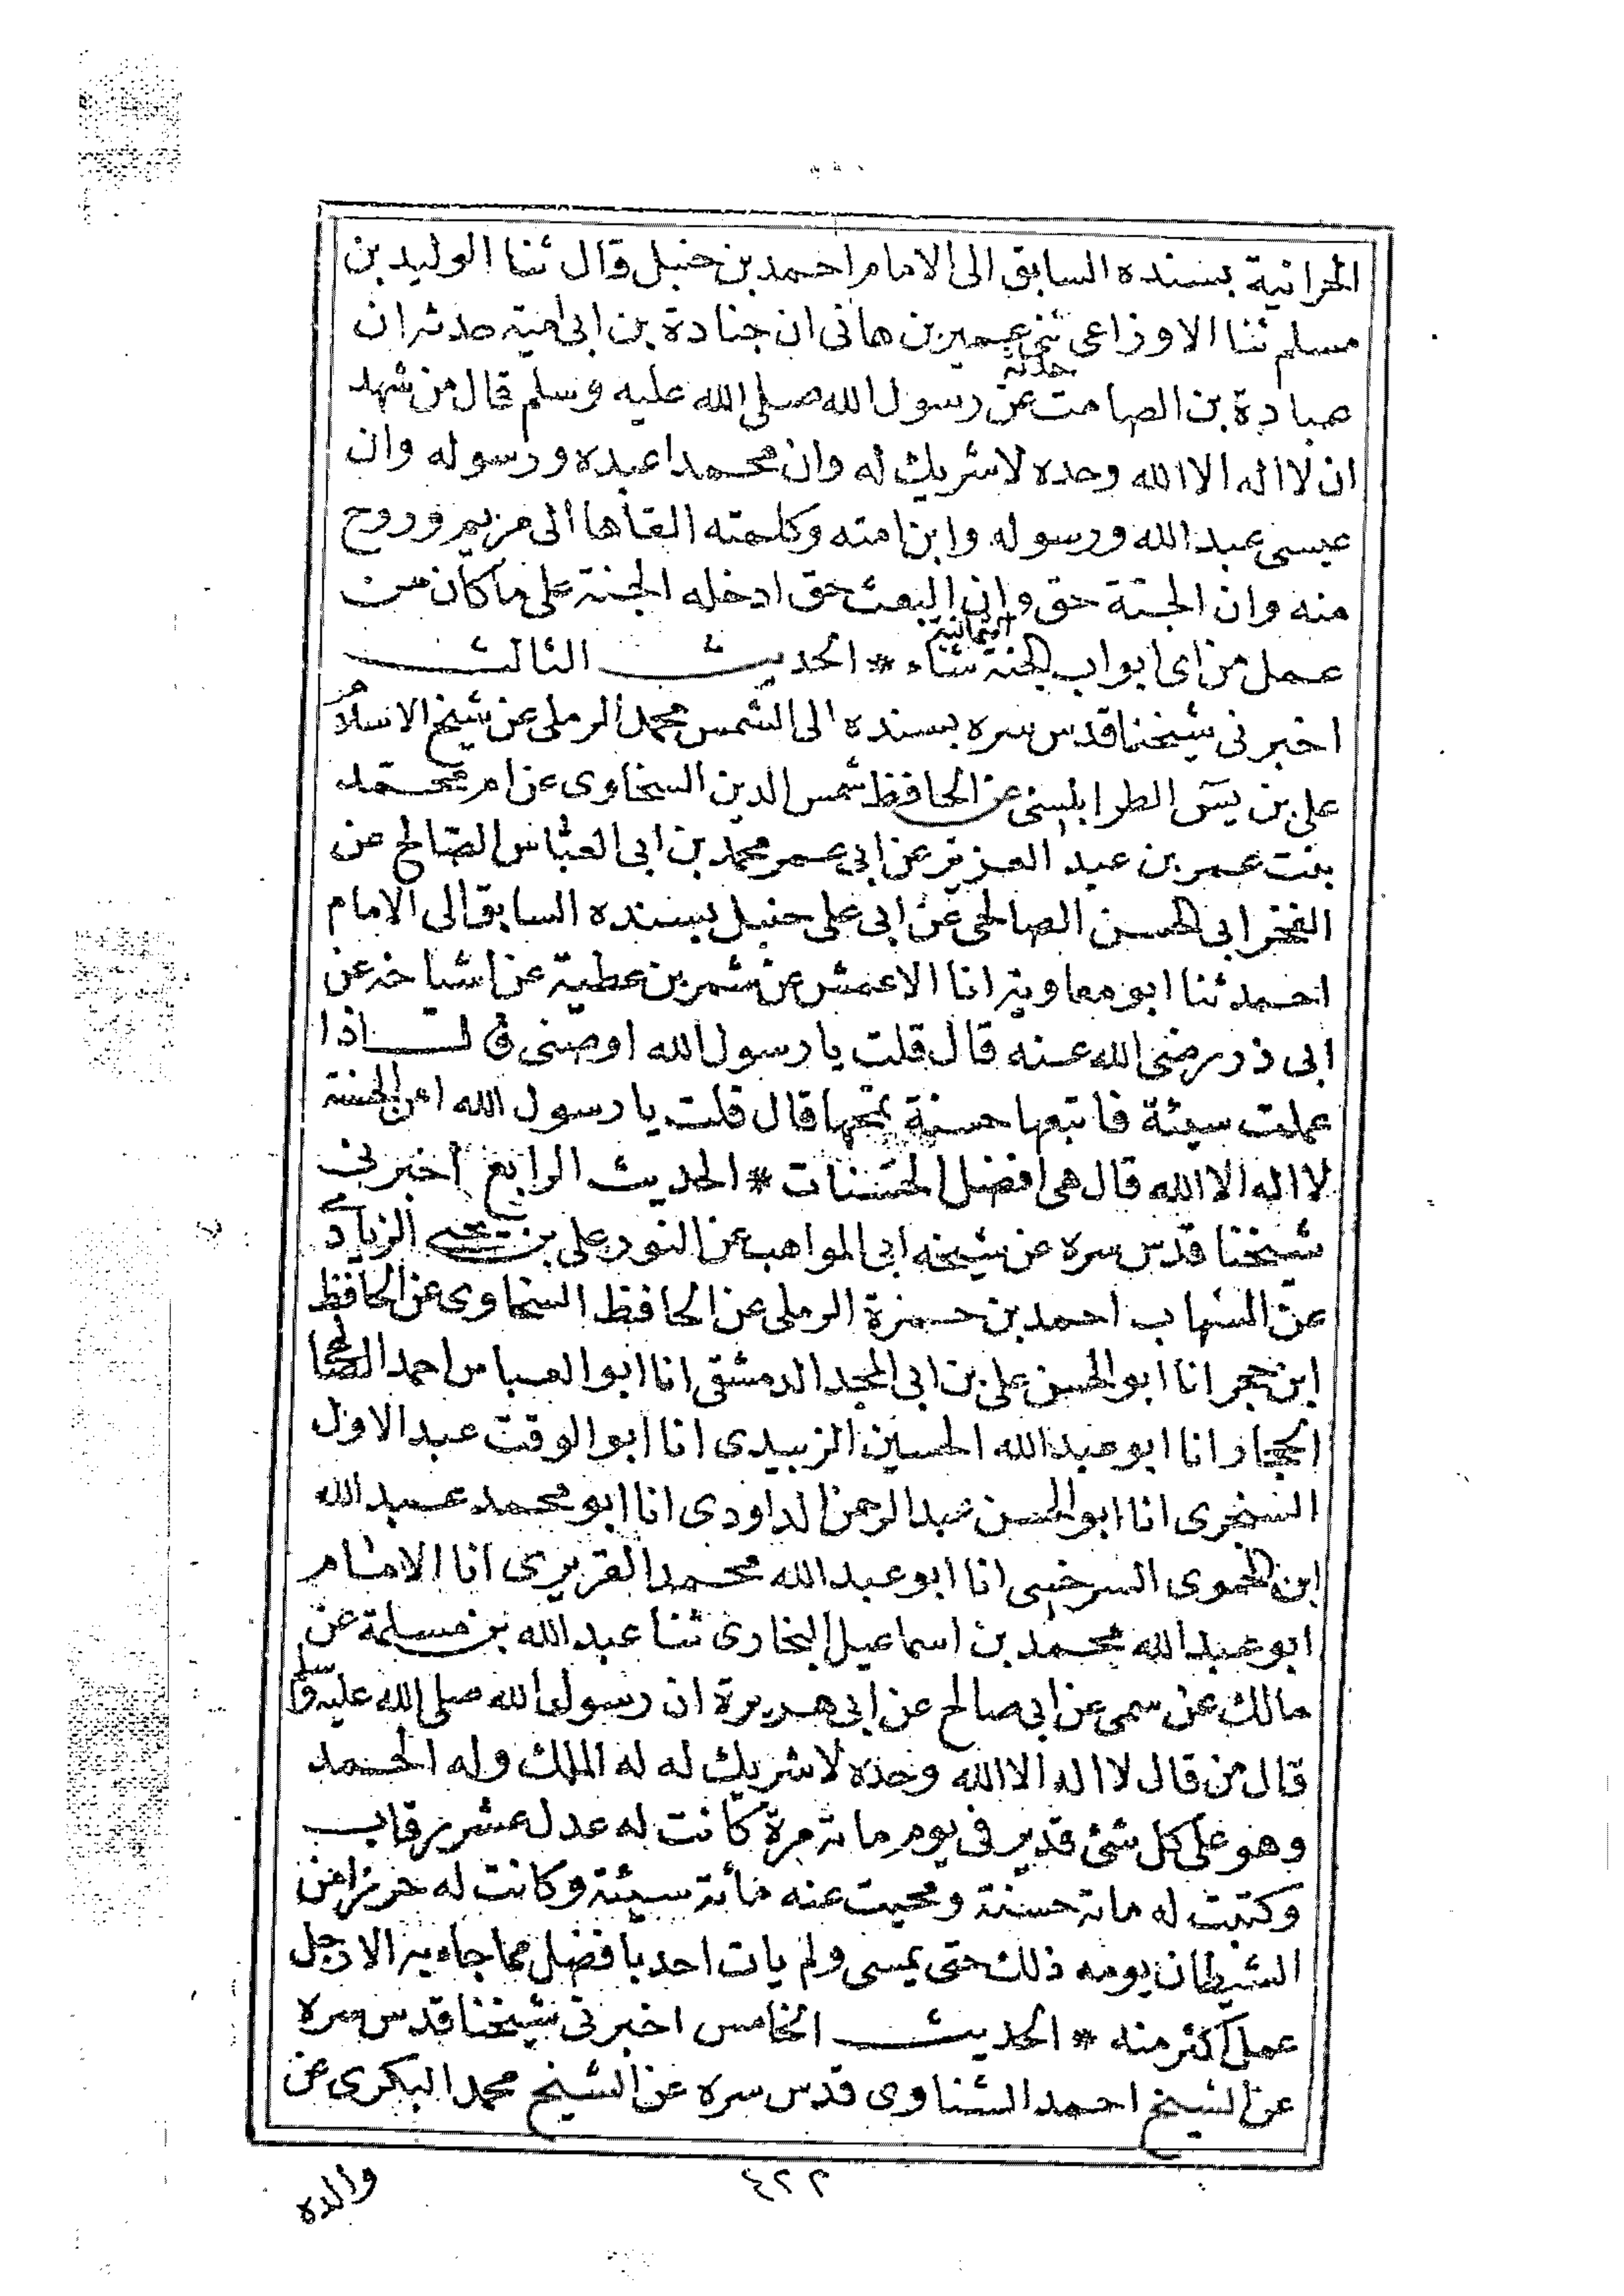 الحرانية بسنده السابق الى الامام احمد بن حنبل قال ثنا الوليد بن
مسلم ثنا الاوزاعى ثنى عمير بن هانى ان جنادة بن ابى امية حدثه ان
عبادة بن الصامت حدثه عن رسول الله صلى الله عليه وسلم قال من شهد
ان لا اله الا الله وحده لا شريك له وان محمدا عبده ورسوله وان
عيسى عبد الله ورسوله وابن امته وكلمته القاها الى مريم وروح
منه وان الجنة حق وان البعث حق ادخله الجنة على ما كان من
عمل من اى ابواب الجنة الثمانية شاء * الحديث الثالث
اخبرنى شيخنا قدس سره بسنده الى الشمس محمد الرملى عن شيخ الاسلام
على بن يسَ الطرابلسى عن الحافظ شمس الدين السخاوى عن ام محمد
بنت عمر بن عبد العزيز عن ابى عمر محمد بن ابى العباس الصالح عن
الفخر ابى الحسن الصالحى عن ابى على حنبل بسنده السابق الى الامام
احمد ثنا ابو معاوية انا الاعمش عن شمر بن عطية عن اشياخه عن
ابى ذر رضى الله عنه قال قلت يا رسول الله اوصنى قال اذا
عملت سيئة فاتبعها حسنة تمحها قال قلت يا رسول الله امن الحسنة
لا اله الا الله قال هى افضل الحسنات * الحديث الرابع اخبرنى
شيخنا قدس سره عن شيخه ابى المواهب عن النور على بن يحيى الزيادى
عن الشهاب احمد بن حمزة الرملى عن الحافظ السخاوى عن الحافظ
ابن حجر انا ابو الحسن على بن ابى المجد الدمشقى انا ابو العباس احمد الصالحى
الحجار انا ابو عبد الله الحسين الزبيدى انا ابو الوقت عبد الاول
السنجرى انا ابو الحسن عبد الرحمن الداودى انا ابو محمد عبد الله
ابن الحموى السرخسى انا ابو عبد الله محمد الفربرى انا الامام
ابو عبد الله محمد بن اسماعيل البخارى ثنا عبد الله بن مسلمة عن
مالك عن سمى عن ابى صالح عن ابى هريرة ان رسول الله صلى الله عليه وسلم
قال من قال لا اله الا الله وحده لا شريك له له الملك وله الحمد
وهو على كل شئ قدير فى يوم مائة مرة كانت له عدل عشر رقاب
وكتبت له مائة حسنة ومحيت عنه مائة سيئة وكانت له حرزا من
الشيطان يومه ذلك حتى يمسى ولم يات احد بافضل مما جاء به الا رجل
عمل اكثر منه * الحديث الخامس اخبرنى شيخنا قدس سره
عن الشيخ احمد الشناوى قدس سره عن الشيخ محمد البكرى عن
والده
٤٢٢